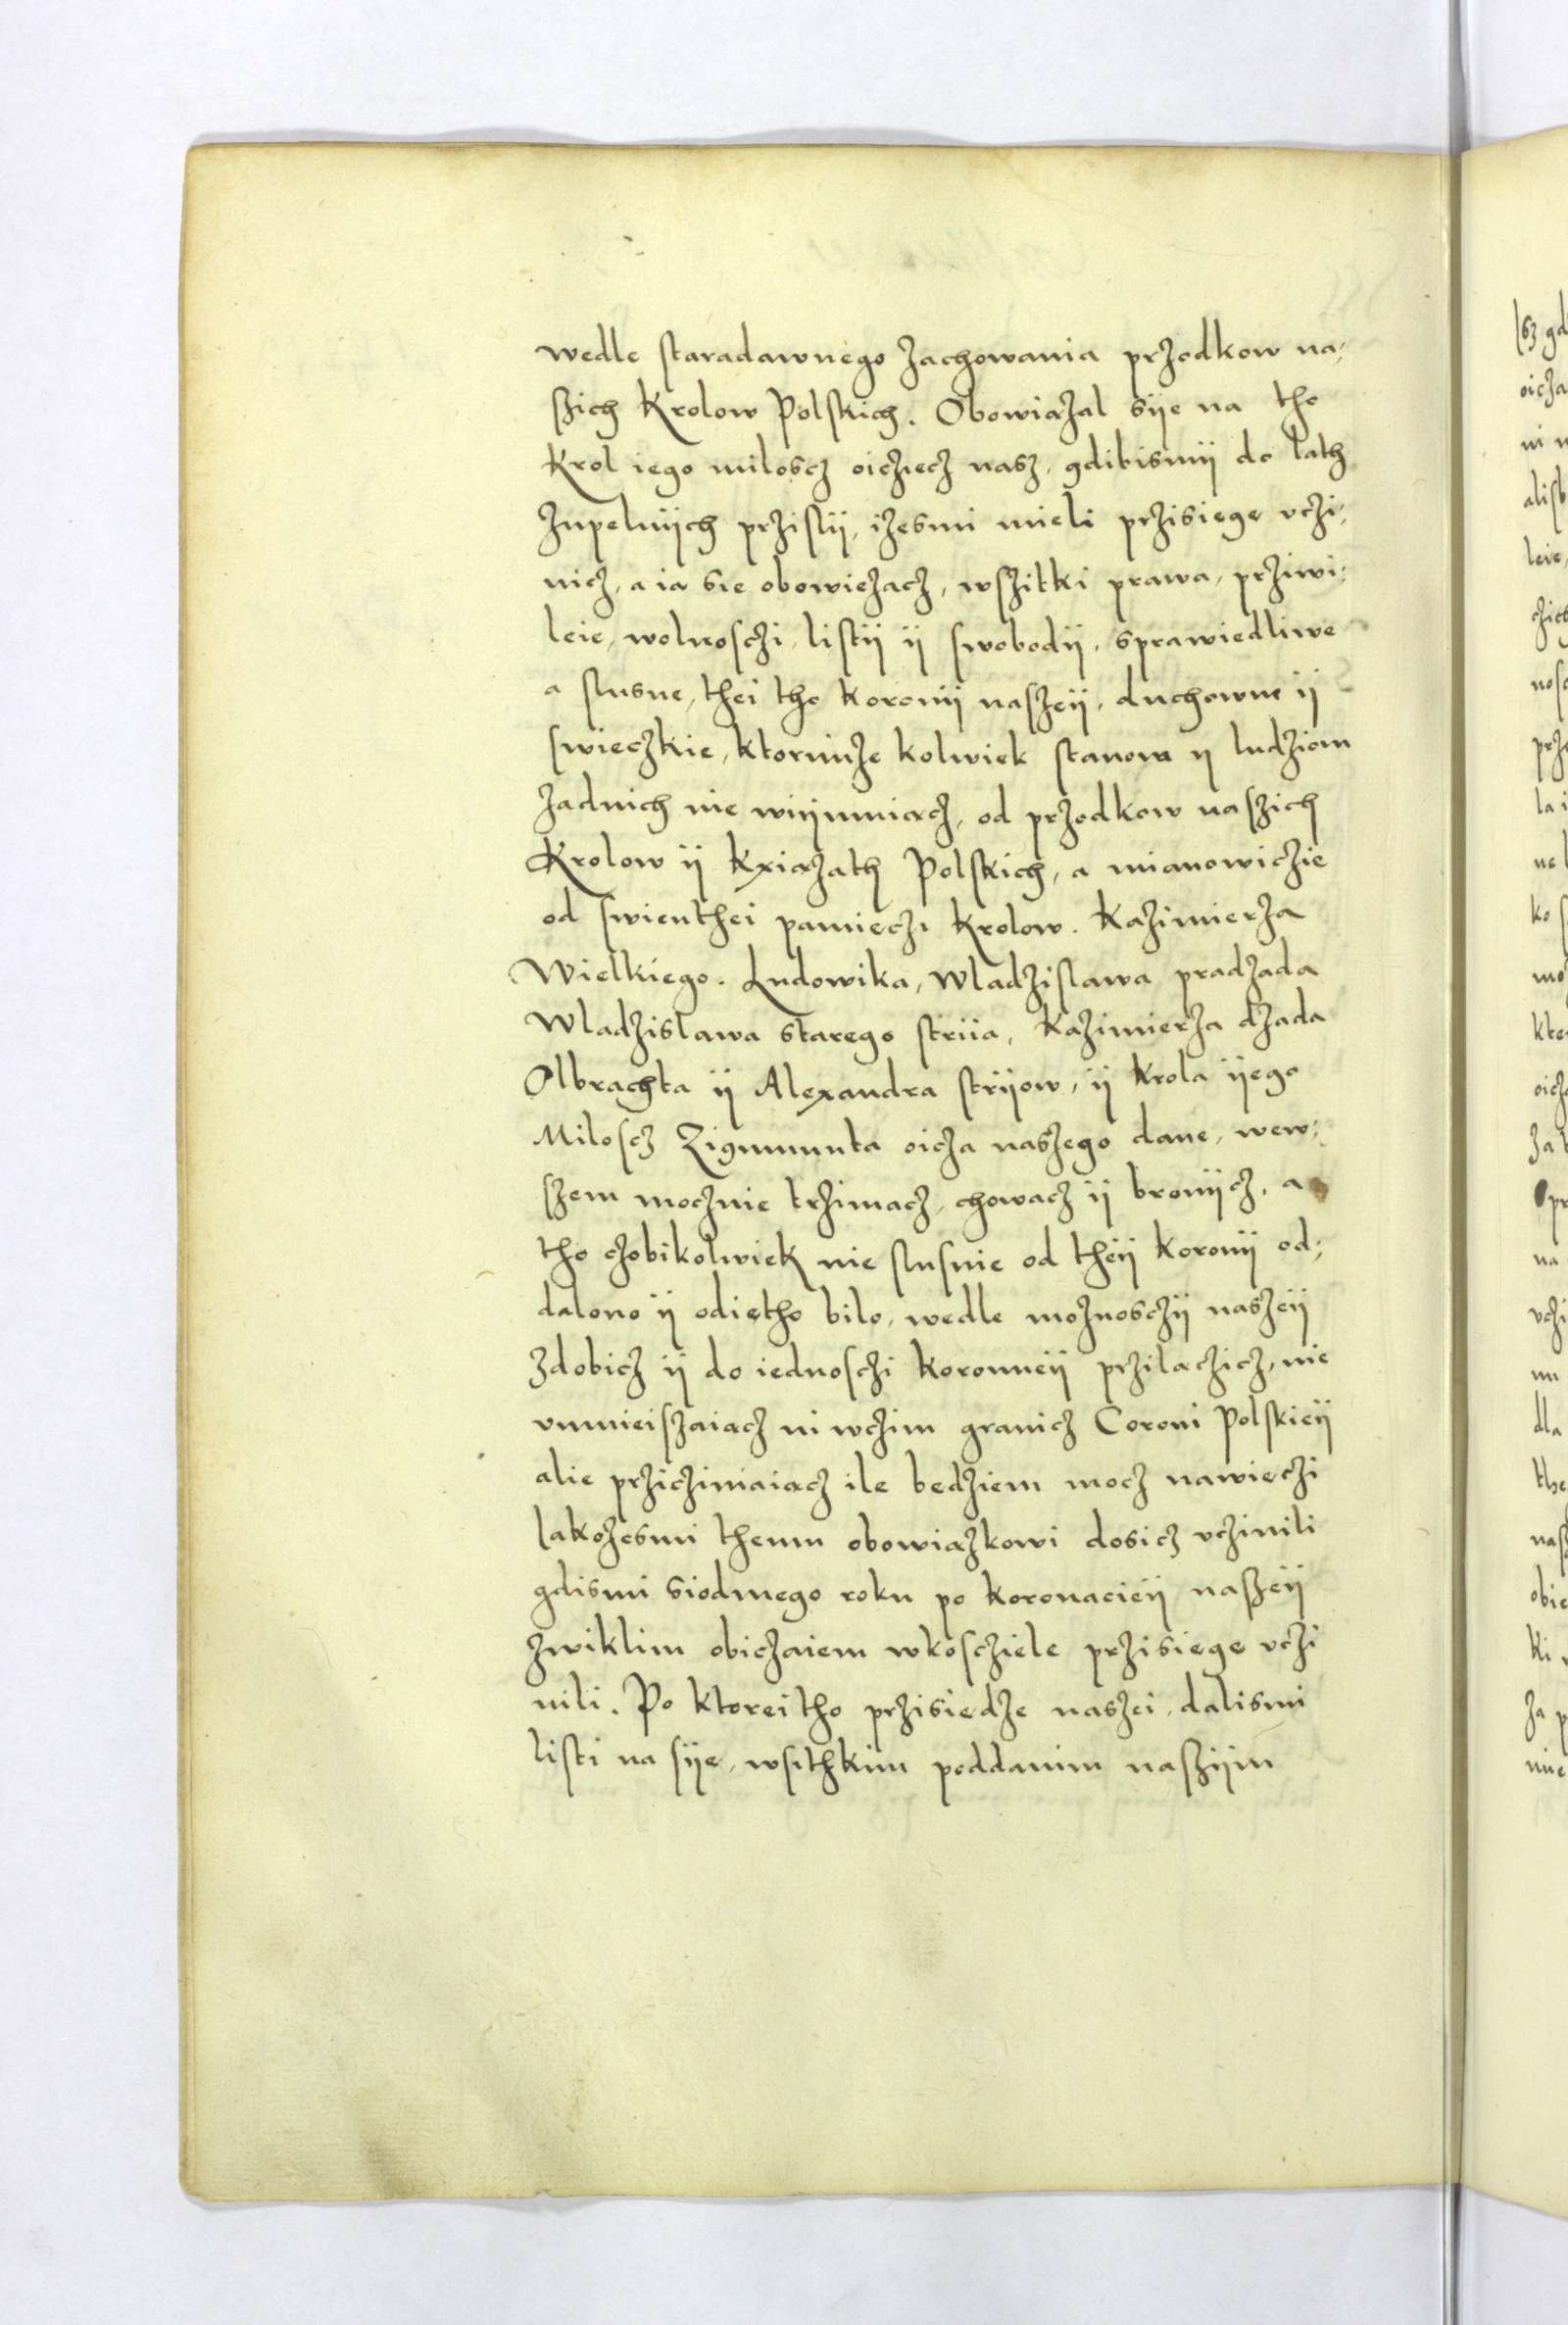 wedle staradawnego zachowania przodkow na-
szich Krolow Polskich. Obowiazal siie na tho
Krol iego miloscz oicziecz nasz, gdibismÿ do lath
zupelnÿch przislÿ, izesmi mieli przisiege vczi-
nicz, a ia sie obowiezacz, wszitki prawa, prziwi-
leie, wolnosczi, listÿ ÿ swobodÿ, sprawiedliwe
a slusne, thei tho Koronÿ naszeÿ, duchowne ÿ
swieczkie, ktorimze kolwiek stanom ÿ ludziom
zadnich nie wÿimuiacz, od przodkow naszich
Krolow ÿ Kxiazath Polskich, a mianowiczie
od swienthei pamieczi Krolow. Kazimierza
Wielkiego. Ludowika, Wladzislawa pradzada
Wladzislawa starego striia, Kazimierza dzada
Olbrachta ÿ Alexandra strÿow, ÿ Krola ÿego
Miloscz Zigmunta oicza naszego dane, wew-
szem mocznie trzimacz, chowacz ÿ bronÿcz, a
tho czobikolwiek nie slusnie od theÿ Koronÿ od-
dalono ÿ odietho bilo, wedle moznosczÿ naszeÿ
zdobicz ÿ do iednosczi Koronneÿ przilaczicz, nie
vmnieiszaiacz ni wczim granicz Coroni Polskieÿ
alie prziczniaiacz ile bedziem mocz nawieczi
Iakozesmi themu obowiazkowi dosicz vczinili
gdismi siodmego roku po Koronacieÿ naszeÿ
zwiklim obiczaiem wkosciele przisiege vczi
nili. Po ktorei tho przisiedze naszei, dalismi
listi na siie, wsithkim poddanim naszÿm